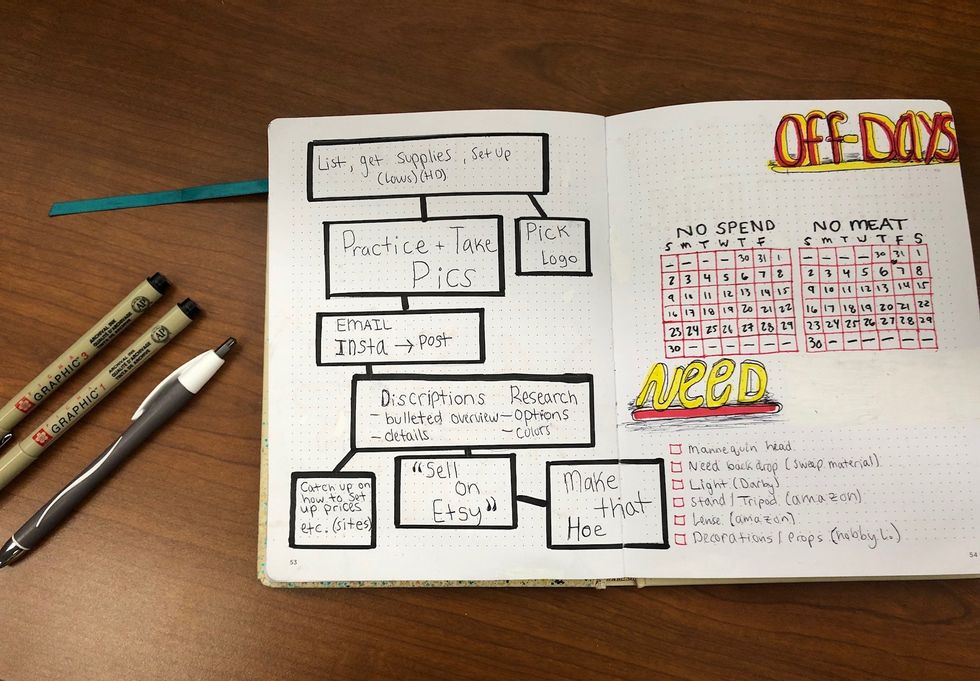 List, get supplies, Set up
(Lows) (HD)
Practice + Take
Pics
Pick
Logo
EMAIL
Insta → Post
Discriptions
- bulleted overview
- details
Research
- Options
- Colors
Catch up on
how to set
up prices
etc. (sites)
"Sell
On
Etsy"
Make
that
Hoe
53
OFF-DAYS
NO SPEND
S M T W T F
- - - - 30 31 1
2 3 4 5 6 7 8
9 10 11 12 13 14 15
16 17 18 19 20 21 22
23 24 25 26 27 28 29
30 - - - - - -
NO MEAT
S M T W T F S
- - - - 30 31 1
2 3 4 5 6 7 8
9 10 11 12 13 14 15
16 17 18 19 20 21 22
23 24 25 26 27 28 29
30 - - - - - -
NEED
mannequin head
Need backdrop (sweap material)
Light (Darby)
Stand / Tripod (amazon)
Lense (amazon)
Decorations / Props (hobby L.)
54
GRAPHIC 3
GRAPHIC 1
AP
AP